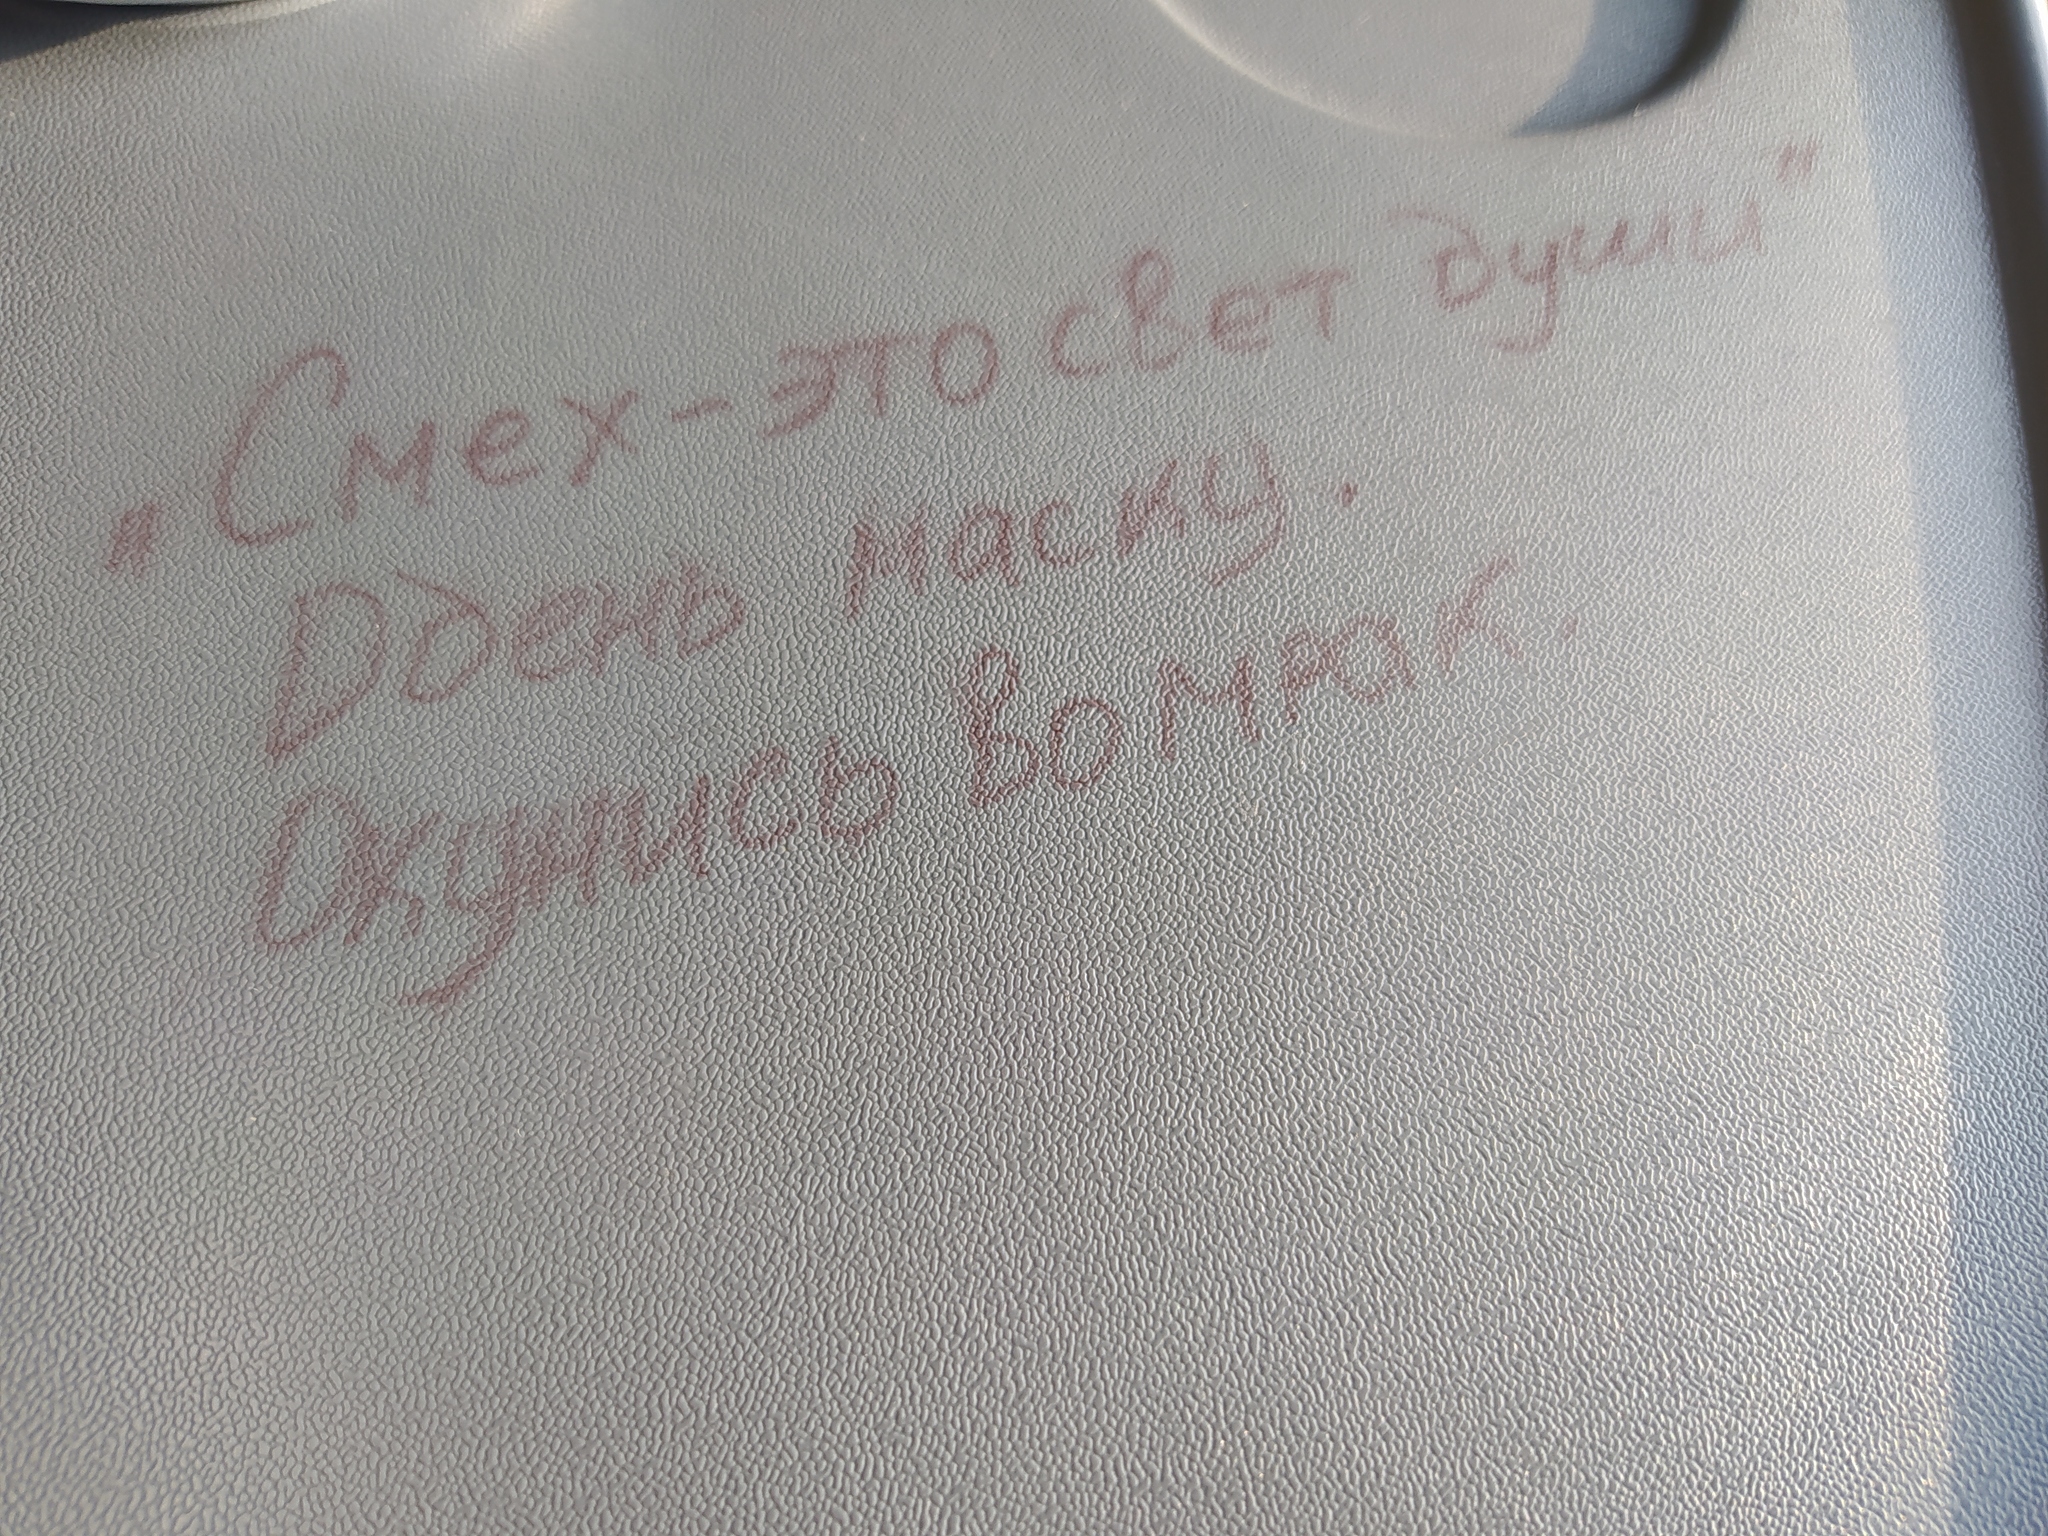 "Смех - это свет души"
Одень маску.
Окунись во мрак.